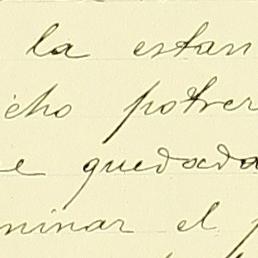 la estan
icho potrer
e quedada
minar el p